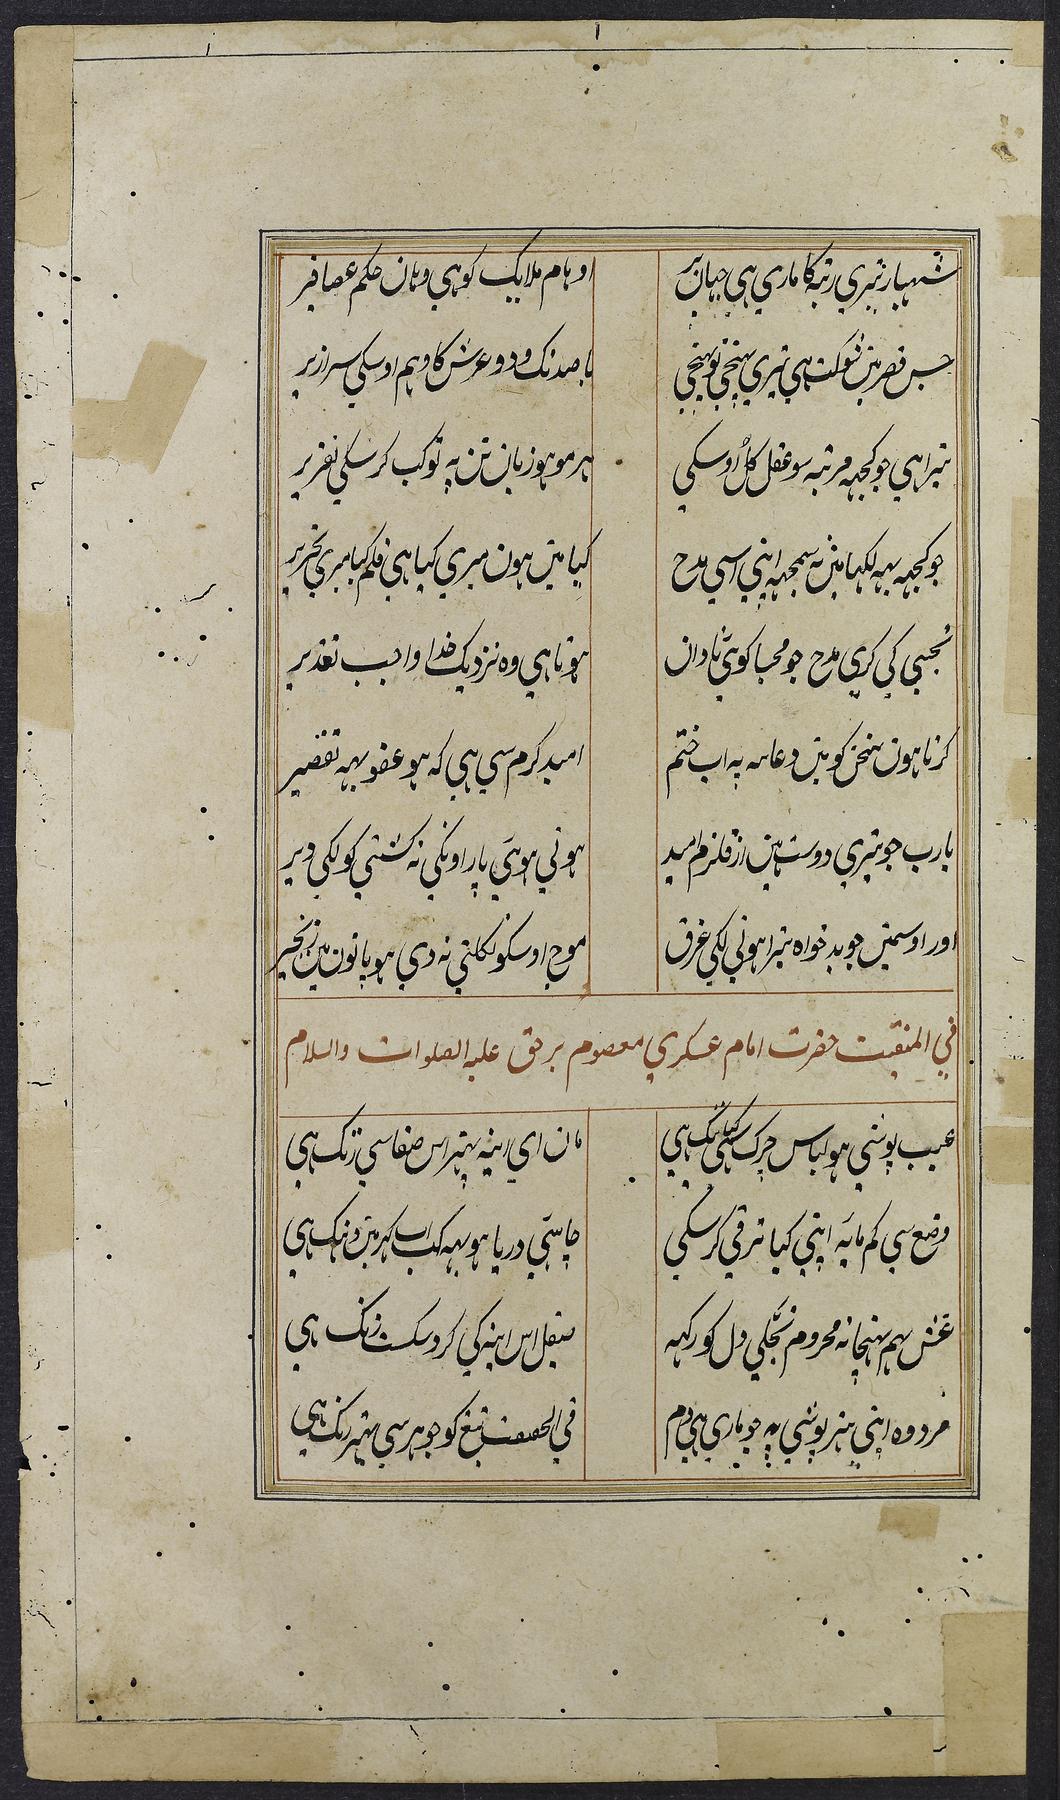 شہباز تیري رتبہ کا ماري هي جہان پر
اوہام ملایک کو هي وہان حکم عصافیر
جس قصر مین شوکت هي تیري پہنچي تو پہنچي
با صد تک و دو عرش کا وہم اوسکي سرازیر
تیرا هي جو کچہہ مرتبہ سو عقل کل اوسکي
ہر مو ہو زبان تن پہ تو کب کر سکي تقریر
جو کچہہ یہہ لکہا مین نہ سمجہہ اپني اسي مدح
کیا مین ہون میري کیا هي قلم کیا میري تحریر
تجہسي کي کري مدح جو مجسا کوئي نادان
ہوتا هي وہ نزدیک خدا واجب تعذیر
کرتا ہون سخن کو مین دعائیہ پہ اب ختم
امید کرم سي هي کہ ہو عفو یہہ تقصیر
یارب جو تیري دوست ہین از قلزم امید
ہوني هوئي پار اونکي نہ کشتي کو لکي دیر
اور اوسمین جو بدخواہ تیرا ہوني لکي غرق
موج اوسکو نکلني نہ دي ہو پانون مین زنجیر
في المنقبت حضرت امام عسکري معصوم برحق علیہ الصلوات والسلام
عیب پوشي ہو لباس چرک سي کیا ننگ هي
مان اي اینہ بہتر اس صفا سي زنک هي
وضع سي کم مایہ اپني کیا ترقي کر سکي
چاہئي دریا ہو یہہ کب آب کہر مین ونک هي
غش ہم پہنچا نہ محروم تجلي دل کو رکہہ
صیقل اس اینہ کي کرد شکست زنک هي
مرد وہ اپني ہنر پوشي پہ جو ماري هي دم
في الحقیقت تیغ کو جوہر سي بہتر زنک هي